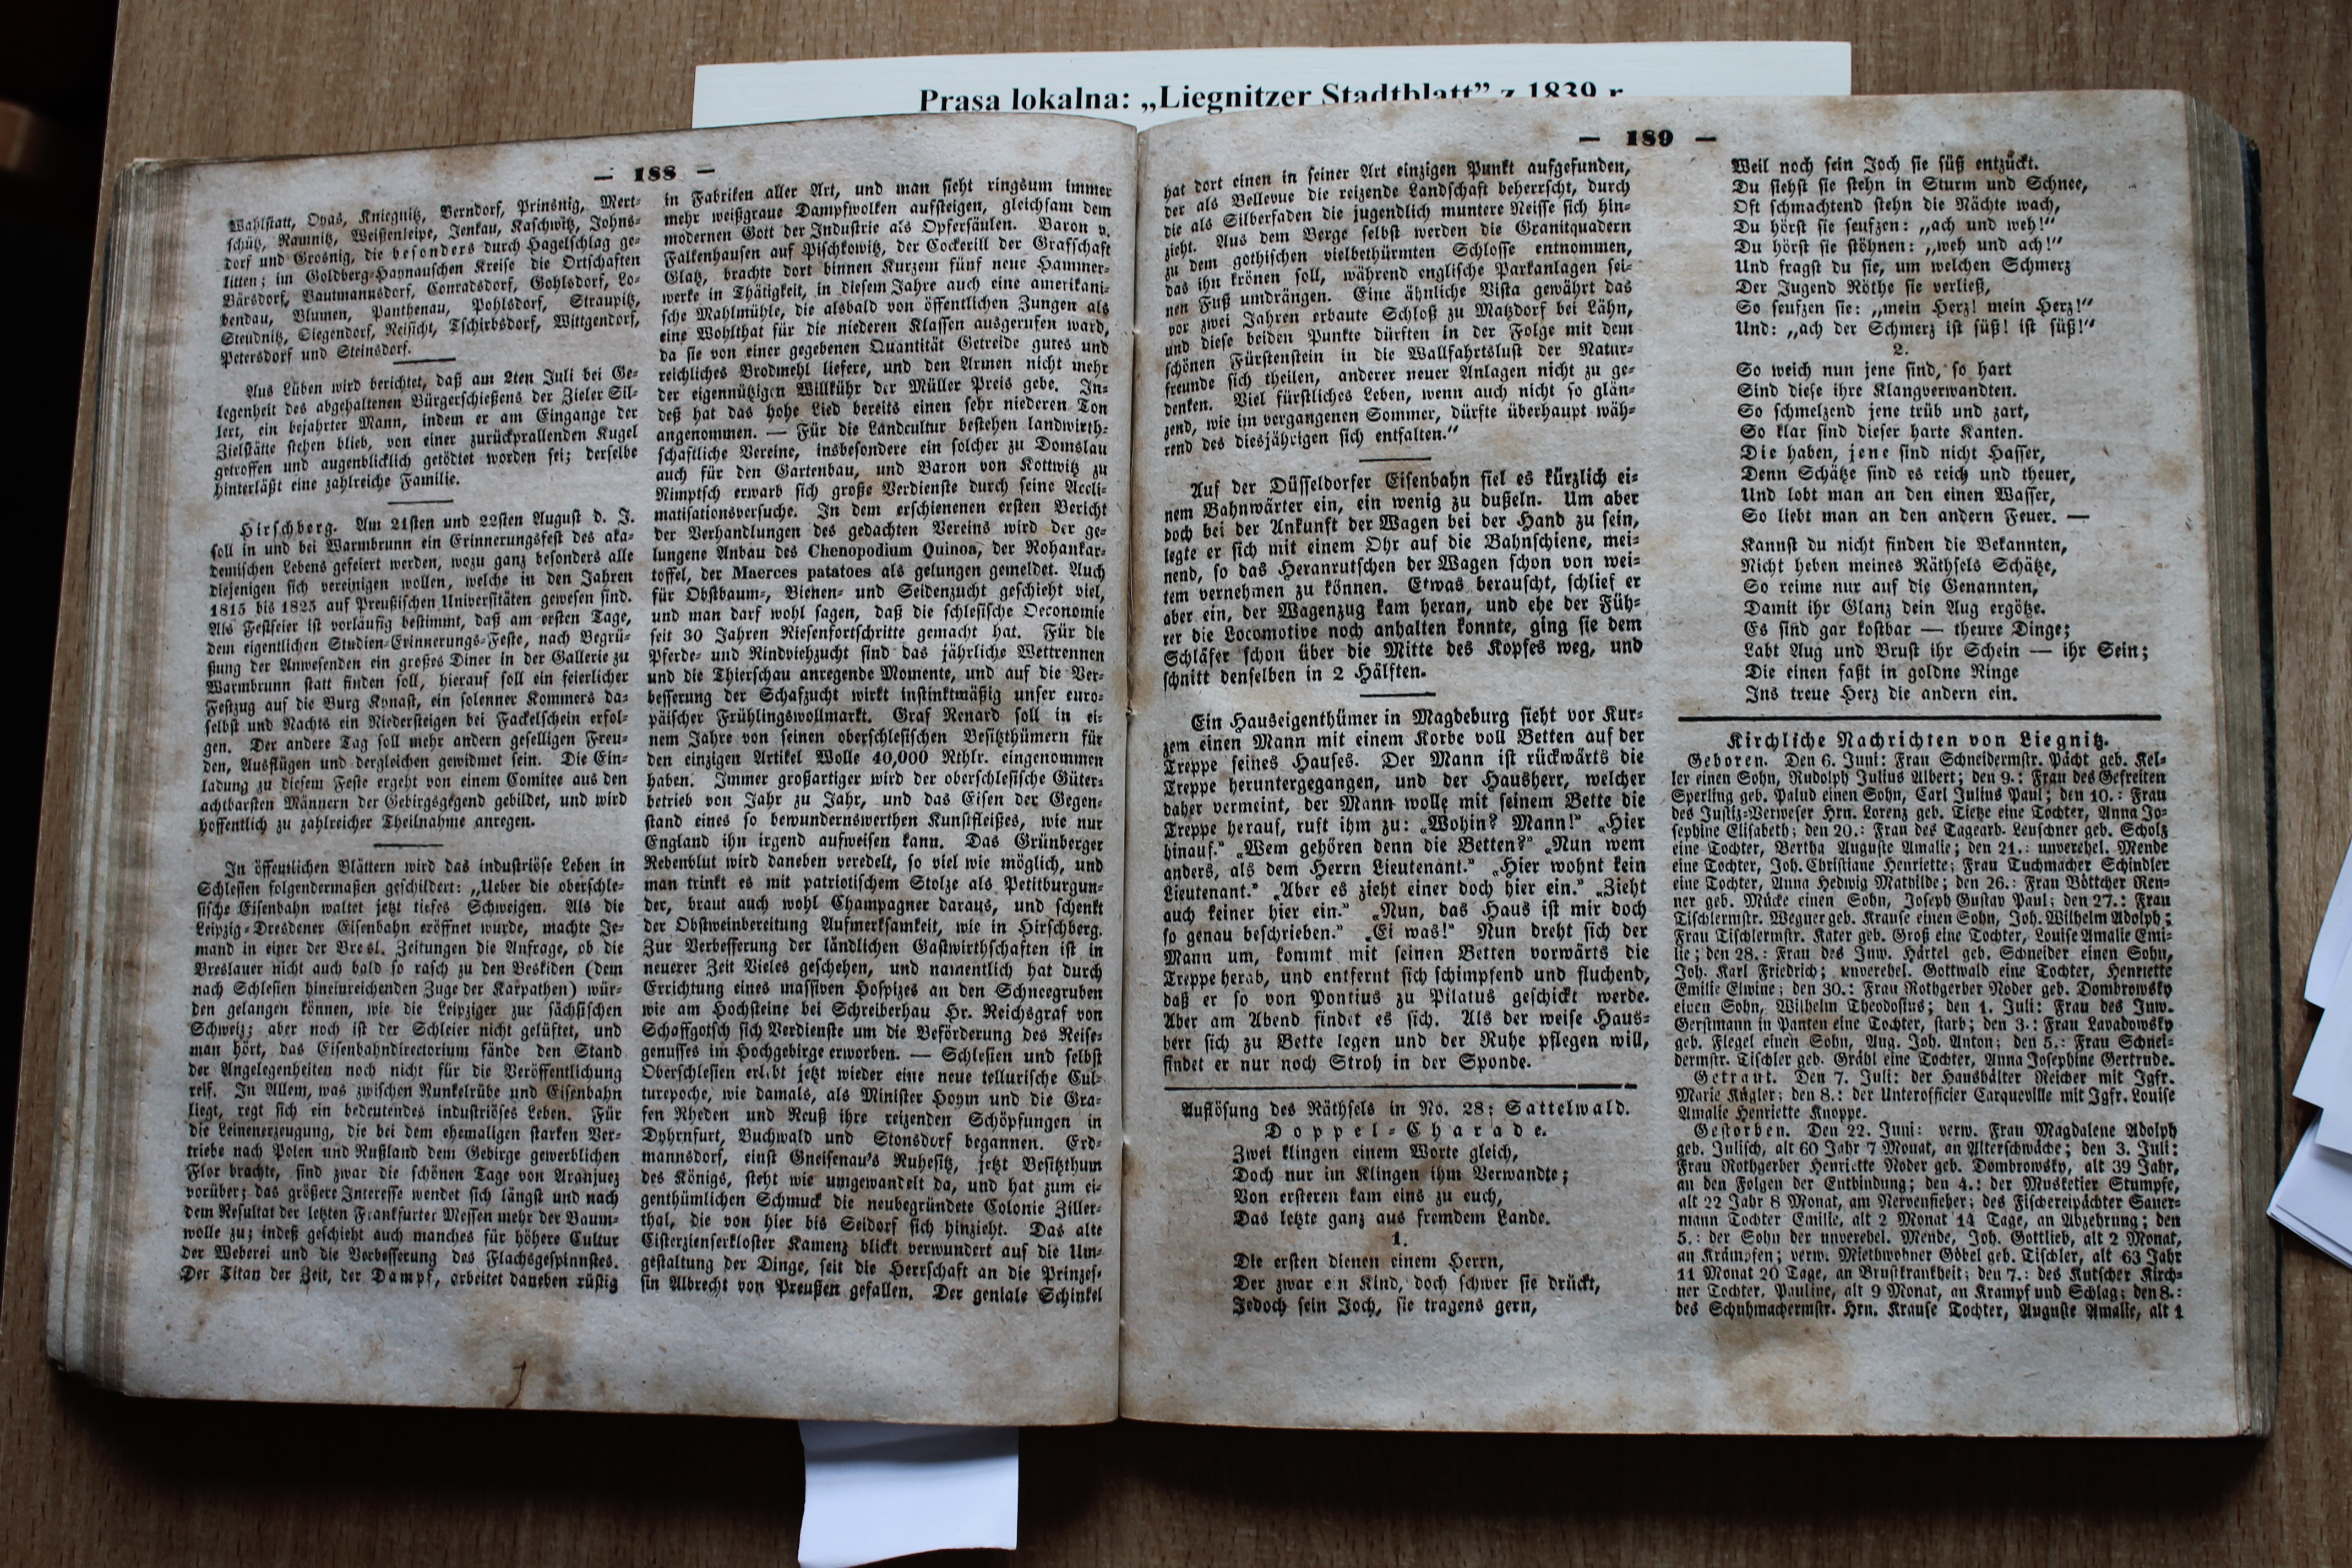 Prasa lokalna: „Liegnitzer Stadtblatt” z 1839 r.
— 188 —
Wahlstatt, Oyas, Kniegnitz, Berndorf, Prinsnig, Mert-
schütz, Raumnitz, Weissenleipe, Jenkau, Kaschwitz, Johns-
dorf und Grosnig, die besonders durch Hagelschlag ge-
litten; im Goldberg-Haynauschen Kreise die Ortschaften
Bärsdorf, Bautmannsdorf, Conradsdorf, Gohlsdorf, Lo-
bendau, Blumen, Panthenau, Pohlsdorf, Straupitz,
Steudnitz, Siegendorf, Reisicht, Tschirbsdorf, Wittgendorf,
Petersdorf und Steinsdorf.
Aus Lüben wird berichtet, daß am 2ten Juli bei Ge-
legenheit des abgehaltenen Bürgerschießens der Zieler Sil-
lert, ein bejahrter Mann, indem er am Eingange der
Zielstätte stehen blieb, von einer zurückprallenden Kugel
getroffen und augenblicklich getödtet worden sei; derselbe
hinterläßt eine zahlreiche Familie.
Hirschberg. Am 21sten und 22sten August d. J.
soll in und bei Warmbrunn ein Erinnerungsfest des aka-
demischen Lebens gefeiert werden, wozu ganz besonders alle
diejenigen sich vereinigen wollen, welche in den Jahren
1815 bis 1825 auf Preußischen Universitäten gewesen sind.
Als Festfeier ist vorläufig bestimmt, daß am ersten Tage,
dem eigentlichen Studien-Erinnerungs-Feste, nach Begrü-
ßung der Anwesenden ein großes Diner in der Gallerie zu
Warmbrunn statt finden soll, hierauf soll ein feierlicher
Festzug auf die Burg Kynast, ein solenner Kommers da-
selbst und Nachts ein Niedersteigen bei Fackelschein erfol-
gen. Der andere Tag soll mehr andern geselligen Freu-
den, Ausflügen und dergleichen gewidmet sein. Die Ein-
ladung zu diesem Feste ergeht von einem Comitee aus den
achtbarsten Männern der Gebirgsgegend gebildet, und wird
hoffentlich zu zahlreicher Theilnahme anregen.
In öffentlichen Blättern wird das industriöse Leben in
Schlesien folgendermaßen geschildert: „Ueber die oberschle-
sische Eisenbahn waltet jetzt tiefes Schweigen. Als die
Leipzig-Dresdener Eisenbahn eröffnet wurde, machte Je-
mand in einer der Bresl. Zeitungen die Anfrage, ob die
Breslauer nicht auch bald so rasch zu den Beskiden (dem
nach Schlesien hineinreichenden Zuge der Karpathen) wür-
den gelangen können, wie die Leipziger zur sächsischen
Schweiz; aber noch ist der Schleier nicht gelüftet, und
man hört, das Eisenbahndirectorium fände den Stand
der Angelegenheiten noch nicht für die Veröffentlichung
reif. In Allem, was zwischen Runkelrübe und Eisenbahn
liegt, regt sich ein bedeutendes industriöses Leben. Für
die Leinenerzeugung, die bei dem ehemaligen starken Ver-
triebe nach Polen und Rußland dem Gebirge gewerblichen
Flor brachte, sind zwar die schönen Tage von Aranjuez
vorüber; das größere Interesse wendet sich längst und nach
dem Resultat der letzten Frankfurter Messen mehr der Baum-
wolle zu; indeß geschieht auch manches für höhere Cultur
der Weberei und die Verbesserung des Flachsgespinnstes.
Der Titan der Zeit, der Dampf, arbeitet daneben rüstig
in Fabriken aller Art, und man sieht ringsum immer
mehr weißgraue Dampfwolken aufsteigen, gleichsam dem
modernen Gott der Industrie als Opfersäulen. Baron v.
Falkenhausen auf Pischkowitz, der Cockerill der Grafschaft
Glatz, brachte dort binnen Kurzem fünf neue Hammer-
werke in Thätigkeit, in diesem Jahre auch eine amerikani-
sche Mahlmühle, die alsbald von öffentlichen Zungen als
eine Wohlthat für die niederen Klassen ausgerufen ward,
da sie von einer gegebenen Quantität Getreide gutes und
reichliches Brodmehl liefere, und den Armen nicht mehr
der eigennützigen Willkühr der Müller Preis gebe. In-
deß hat das hohe Lied bereits einen sehr niederen Ton
angenommen. — Für die Landcultur bestehen landwirth-
schaftliche Vereine, insbesondere ein solcher zu Domslau
auch für den Gartenbau, und Baron von Kottwitz zu
Nimptsch erwarb sich große Verdienste durch seine Accli-
matisationsversuche. In dem erschienenen ersten Bericht
der Verhandlungen des gedachten Vereins wird der ge-
lungene Anbau des Chenopodium Quinoa, der Rohankar-
toffel, der Maerces patatoes als gelungen gemeldet. Auch
für Obstbaum-, Bienen- und Seidenzucht geschieht viel,
und man darf wohl sagen, daß die schlesische Oeconomie
seit 30 Jahren Riesenfortschritte gemacht hat. Für die
Pferde- und Rindviehzucht sind das jährliche Wettrennen
und die Thierschau anregende Momente, und auf die Ver-
besserung der Schafzucht wirkt instinktmäßig unser euro-
päischer Frühlingswollmarkt. Graf Renard soll in ei-
nem Jahre von seinen oberschlesischen Besitzthümern für
den einzigen Artikel Wolle 40,000 Rthlr. eingenommen
haben. Immer großartiger wird der oberschlesische Güter-
betrieb von Jahr zu Jahr, und das Eisen der Gegen-
stand eines so bewundernswerthen Kunstfleißes, wie nur
England ihn irgend aufweisen kann. Das Grünberger
Rebenblut wird daneben veredelt, so viel wie möglich, und
man trinkt es mit patriotischem Stolze als Petitburgun-
der, braut auch wohl Champagner daraus, und schenkt
der Obstweinbereitung Aufmerksamkeit, wie in Hirschberg.
Zur Verbesserung der ländlichen Gastwirthschaften ist in
neuerer Zeit Vieles geschehen, und namentlich hat durch
Errichtung eines massiven Hospizes an den Schneegruben
wie am Hochsteine bei Schreiberhau Hr. Reichsgraf von
Schaffgotsch sich Verdienste um die Beförderung des Reise-
genusses im Hochgebirge erworben. — Schlesien und selbst
Oberschlesien erlebt jetzt wieder eine neue tellurische Cul-
turepoche, wie damals, als Minister Hoym und die Gra-
fen Rheden und Reuß ihre reizenden Schöpfungen in
Dyhrnfurt, Buchwald und Stonsdorf begannen. Erd-
mannsdorf, einst Gneisenau's Ruhesitz, jetzt Besitzthum
des Königs, steht wie umgewandelt da, und hat zum ei-
genthümlichen Schmuck die neubegründete Colonie Ziller-
thal, die von hier bis Seidorf sich hinzieht. Das alte
Cisterzienserkloster Kamenz blickt verwundert auf die Um-
gestaltung der Dinge, seit die Herrschaft an die Prinzes-
sin Albrecht von Preußen gefallen. Der geniale Schinkel
— 189 —
hat dort einen in seiner Art einzigen Punkt aufgefunden,
der als Bellevue die reizende Landschaft beherrscht, durch
die als Silberfaden die jugendlich muntere Neisse sich hin-
zieht. Aus dem Berge selbst werden die Granitquadern
zu dem gothischen vielbethürmten Schlosse entnommen,
das ihn krönen soll, während englische Parkanlagen sei-
nen Fuß umdrängen. Eine ähnliche Vista gewährt das
vor zwei Jahren erbaute Schloß zu Matzdorf bei Lähn,
und diese beiden Punkte dürften in der Folge mit dem
schönen Fürstenstein in die Wallfahrtslust der Natur-
freunde sich theilen, anderer neuer Anlagen nicht zu ge-
denken. Viel fürstliches Leben, wenn auch nicht so glän-
zend, wie im vergangenen Sommer, dürfte überhaupt wäh-
rend des diesjährigen sich entfalten.“
Auf der Düsseldorfer Eisenbahn fiel es kürzlich ei-
nem Bahnwärter ein, ein wenig zu dußeln. Um aber
doch bei der Ankunft der Wagen bei der Hand zu sein,
legte er sich mit einem Ohr auf die Bahnschiene, mei-
nend, so das Heranrutschen der Wagen schon von wei-
tem vernehmen zu können. Etwas berauscht, schlief er
aber ein, der Wagenzug kam heran, und ehe der Füh-
rer die Locomotive noch anhalten konnte, ging sie dem
Schläfer schon über die Mitte des Kopfes weg, und
schnitt denselben in 2 Hälften.
Ein Hauseigenthümer in Magdeburg sieht vor Kur-
zem einen Mann mit einem Korbe voll Betten auf der
Treppe seines Hauses. Der Mann ist rückwärts die
Treppe heruntergegangen, und der Hausherr, welcher
daher vermeint, der Mann wolle mit seinem Bette die
Treppe herauf, ruft ihm zu: „Wohin? Mann!“ „Hier
hinauf.“ „Wem gehören denn die Betten?“ „Nun wem
anders, als dem Herrn Lieutenant.“ „Hier wohnt kein
Lieutenant.“ „Aber es zieht einer doch hier ein.“ „Zieht
auch keiner hier ein.“ „Nun, das Haus ist mir doch
so genau beschrieben.“ „Ei was!“ Nun dreht sich der
Mann um, kommt mit seinen Betten vorwärts die
Treppe herab, und entfernt sich schimpfend und fluchend,
daß er so von Pontius zu Pilatus geschickt werde.
Aber am Abend findet es sich. Als der weise Haus-
herr sich zu Bette legen und der Ruhe pflegen will,
findet er nur noch Stroh in der Sponde.
Auflösung des Räthsels in No. 28: Sattelwald.
Doppel-Charade.
Zwei klingen einem Worte gleich,
Doch nur im Klingen ihm Verwandte;
Von ersteren kam eins zu euch,
Das letzte ganz aus fremdem Lande.
1.
Die ersten dienen einem Herrn,
Der zwar ein Kind, doch schwer sie drückt,
Jedoch sein Joch, sie tragens gern,
Weil noch sein Joch sie süß entzückt.
Du siehst sie stehn in Sturm und Schnee,
Oft schmachtend stehn die Nächte wach,
Du hörst sie seufzen: „ach und weh!“
Du hörst sie stöhnen: „weh und ach!“
Und fragst du sie, um welchen Schmerz
Der Jugend Röthe sie verließ,
So seufzen sie: „mein Herz! mein Herz!“
Und: „ach der Schmerz ist süß! ist süß!“
2.
So weich nun jene sind, so hart
Sind diese ihre Klangverwandten.
So schmelzend jene trüb und zart,
So klar sind dieser harte Kanten.
Die haben, jene sind nicht Hasser,
Denn Schätze sind es reich und theuer,
Und lobt man an den einen Wasser,
So liebt man an den andern Feuer. —
Kannst du nicht finden die Bekannten,
Nicht heben meines Räthsels Schätze,
So reime nur auf die Genannten,
Damit ihr Glanz dein Aug ergötze.
Es sind gar kostbar — theure Dinge;
Labt Aug und Brust ihr Schein — ihr Sein;
Die einen faßt in goldne Ringe
Ins treue Herz die andern ein.
Kirchliche Nachrichten von Liegnitz.
Geboren. Den 6. Juni: Frau Schneidermstr. Pächt geb. Kel-
ler einen Sohn, Rudolph Julius Albert; den 9.: Frau des Gefreiten
Sperling geb. Palud einen Sohn, Carl Julius Paul; den 10.: Frau
des Justiz-Verweser Hrn. Lorenz geb. Tietze eine Tochter, Anna Jo-
sephine Elisabeth; den 20.: Frau des Tagearb. Leuschner geb. Scholz
eine Tochter, Bertha Auguste Amalie; den 21.: unverehel. Mende
eine Tochter, Joh. Christiane Henriette; Frau Tuchmacher Schindler
eine Tochter, Anna Hedwig Mathilde; den 26.: Frau Böttcher Ren-
ner geb. Mücke einen Sohn, Joseph Gustav Paul; den 27.: Frau
Tischlermstr. Wegner geb. Krause einen Sohn, Joh. Wilhelm Adolph;
Frau Tischlermstr. Kater geb. Groß eine Tochter, Louise Amalie Emi-
lie; den 28.: Frau des Inw. Härtel geb. Schneider einen Sohn,
Joh. Karl Friedrich; unverehel. Gottwald eine Tochter, Henriette
Emilie Elwine; den 30.: Frau Rothgerber Noder geb. Dombrowsky
einen Sohn, Wilhelm Theodosius; den 1. Juli: Frau des Inw.
Gerstmann in Panten eine Tochter, starb; den 3.: Frau Lavadowsky
geb. Flegel einen Sohn, Aug. Joh. Anton; den 5.: Frau Schnei-
dermstr. Tischler geb. Gräbl eine Tochter, Anna Josephine Gertrude.
Getraut. Den 7. Juli: der Haushälter Reicher mit Jgfr.
Marie Kügler; den 8.: der Unterofficier Carqueville mit Jgfr. Louise
Amalie Henriette Knoppe.
Gestorben. Den 22. Juni: verw. Frau Magdalene Adolph
geb. Julisch, alt 60 Jahr 7 Monat, an Altersschwäche; den 3. Juli:
Frau Rothgerber Henriette Noder geb. Dombrowsky, alt 39 Jahr,
an den Folgen der Entbindung; den 4.: der Musketier Stumpfe,
alt 22 Jahr 8 Monat, am Nervenfieber; des Fischereipächter Sauer-
mann Tochter Emilie, alt 2 Monat 14 Tage, an Abzehrung; den
5.: der Sohn der unverehel. Mende, Joh. Gottlieb, alt 2 Monat,
an Krämpfen; verw. Miethwohner Göbel geb. Tischler, alt 63 Jahr
11 Monat 20 Tage, an Brustkrankheit; den 7.: des Kutscher Kirch-
ner Tochter, Pauline, alt 9 Monat, an Krampf und Schlag; den 8.:
des Schuhmachermstr. Hrn. Krause Tochter, Auguste Amalie, alt 1